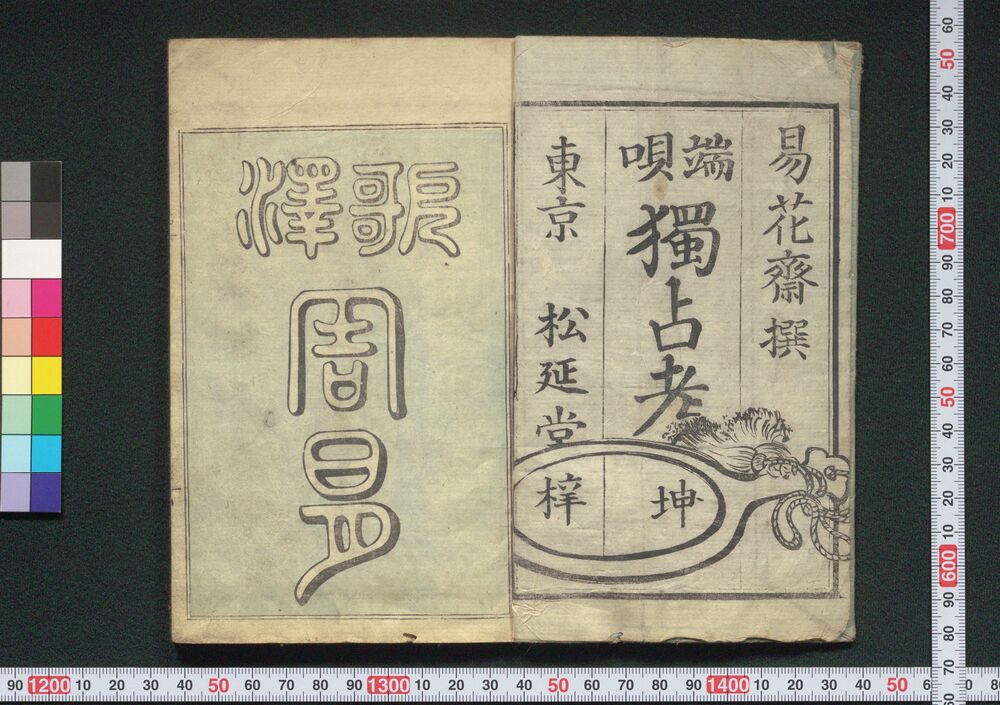 易花齋撰
端唄
獨占考
坤
東京 松延堂
梓
歌澤
周易
60
50
40
30
20
10
700
90
80
70
60
50
40
30
20
10
600
90
80
70
60
90 1200 10 20 30 40 50 60 70 80 90 1300 10 20 30 40 50 60 70 80 90 1400 10 20 30 40 50